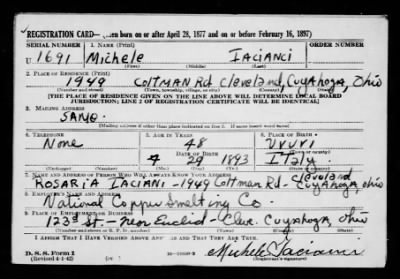 REGISTRATION CARD—(Men born on or after April 28, 1877 and on or before February 16, 1897)
SERIAL NUMBER 1. NAME (Print) ORDER NUMBER
U 1691 Michele IACIANCI
(First) (Middle) (Last)
2. PLACE OF RESIDENCE (Print)
1949 Coltman Rd Cleveland, Cuyahoga, Ohio
(Number and street) (Town, township, village, or city) (County) (State)
[THE PLACE OF RESIDENCE GIVEN ON THE LINE ABOVE WILL DETERMINE LOCAL BOARD
JURISDICTION; LINE 2 OF REGISTRATION CERTIFICATE WILL BE IDENTICAL]
3. MAILING ADDRESS
SAME
[Mailing address if other than place indicated on line 2. If same insert word same]
4. TELEPHONE 5. AGE IN YEARS 6. PLACE OF BIRTH
None 48
DATE OF BIRTH (Town or county)
4 29 1893 ITaly
(Exchange) (Number) (Mo.) (Day) (Yr.) (State or country)
7. NAME AND ADDRESS OF PERSON WHO WILL ALWAYS KNOW YOUR ADDRESS
ROSARIA IACIANI - 1949 Coltman Rd - Cleveland Cuyahoga, Ohio
8. EMPLOYER'S NAME AND ADDRESS
National Copper Smelting Co.
9. PLACE OF EMPLOYMENT OR BUSINESS
123 St - Near Euclid - Cleve. Cuyahoga, Ohio
(Number and street or R. F. D. number) (Town) (County) (State)
I AFFIRM THAT I HAVE VERIFIED ABOVE ANSWERS AND THAT THEY ARE TRUE.
D. S. S. Form 1
(Revised 4-1-42) Michele Iacianci
(Registrant's signature)